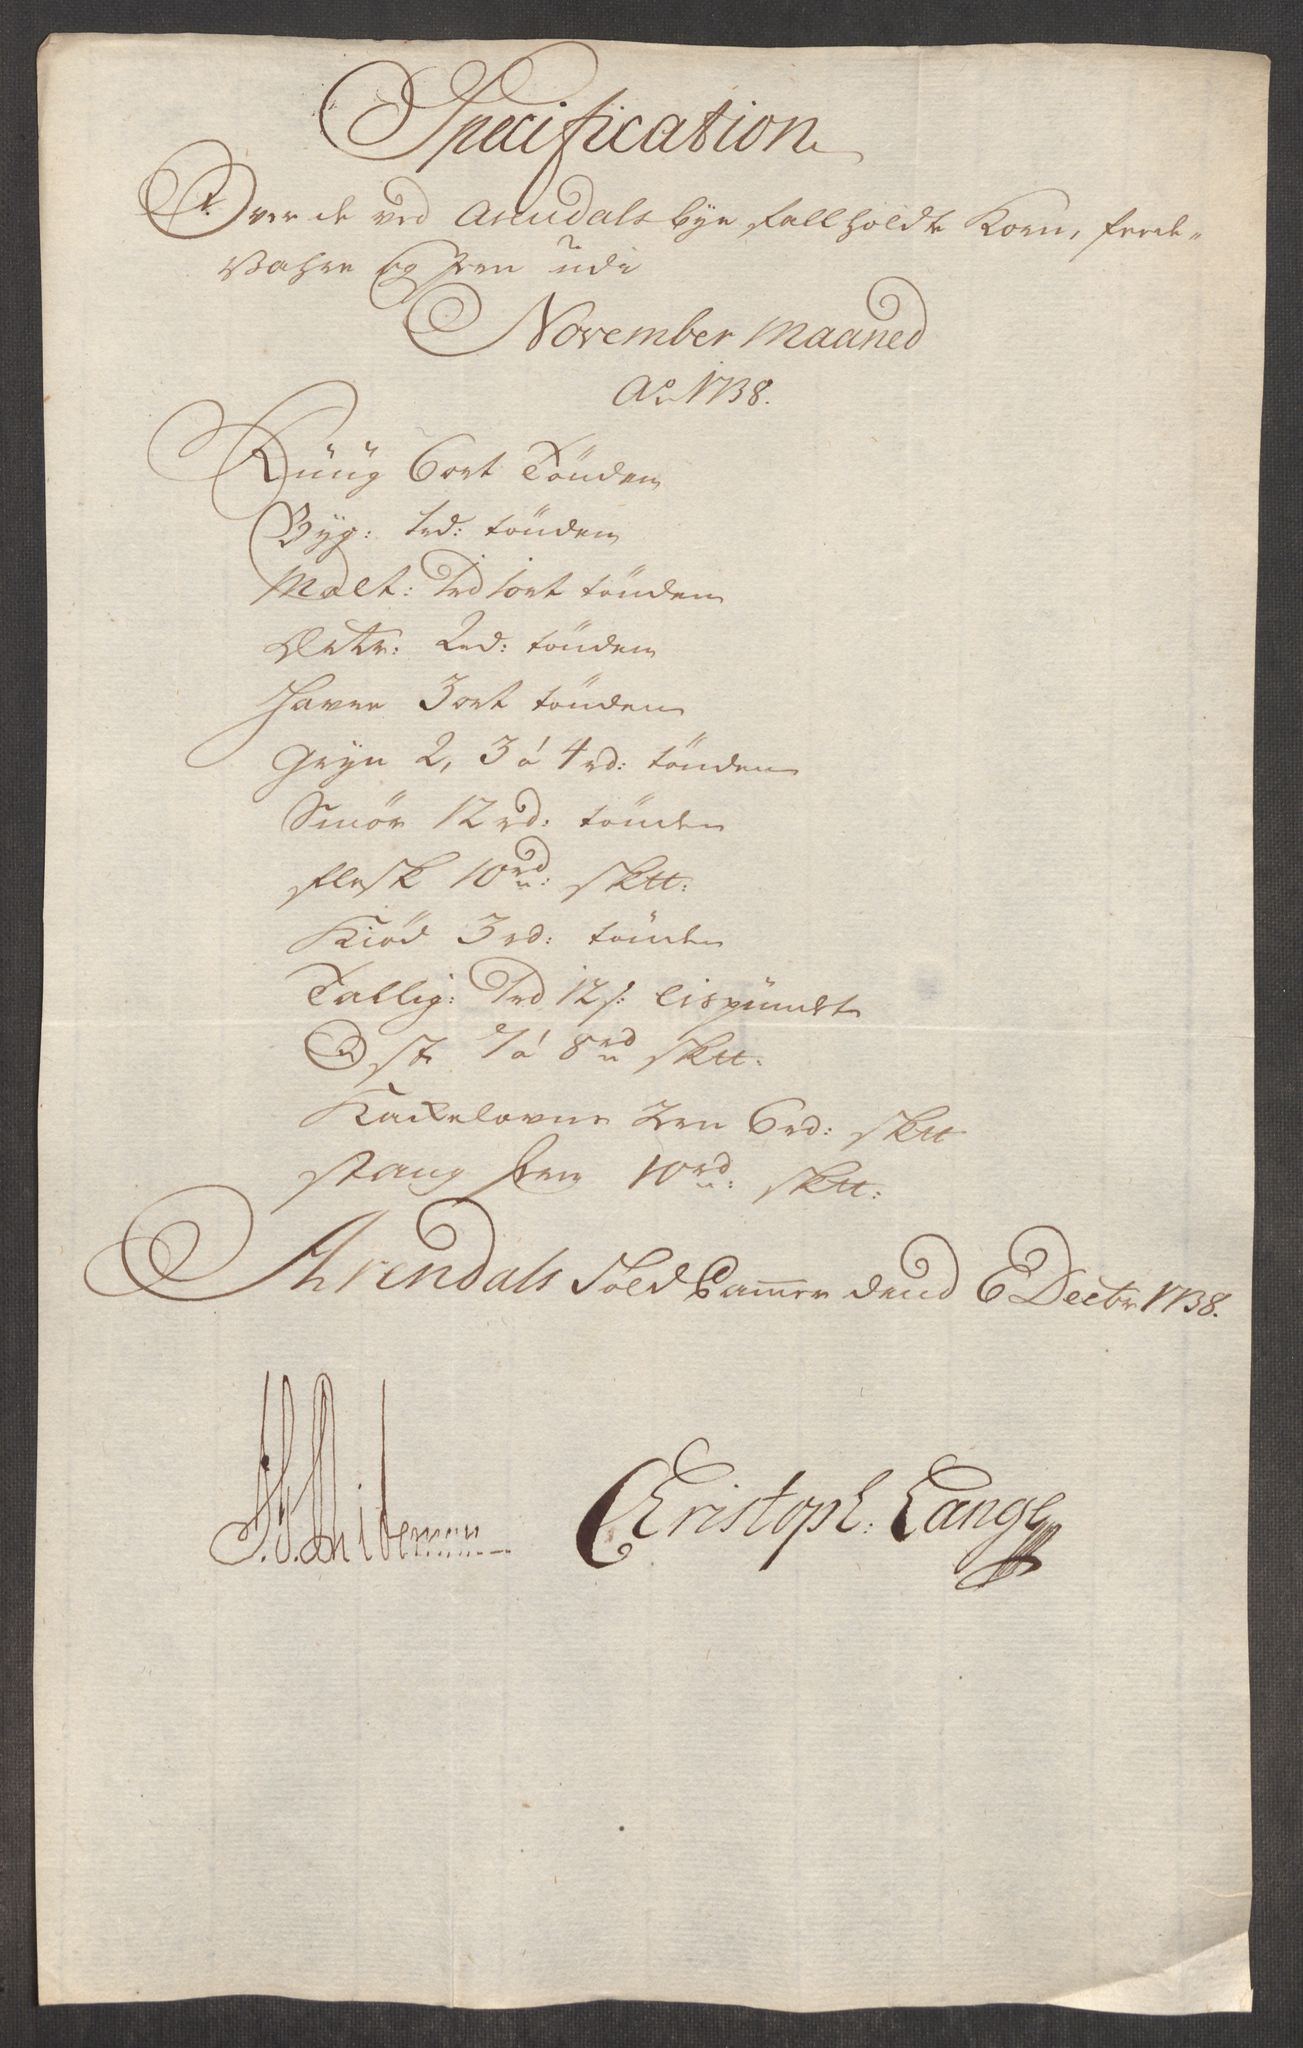 Specification
Over de ved Arendals bÿe fallholdte Korn, fede„
Vahre og Jern udi
November Maaned
Ao 1738.
Rüüg 6 ort Tönden
Bÿg: 1rd: tönden
Malt: 1rd 1ort tönden
Erter: 2rd: tönden
Haver 3 ort tönden
Grÿn 2, 3 á 4 rd: tönden
Smör 12 rd: tönden
flesk 10rd: sktt:
Kiöd 3 rd: tönden
Tallig: 1rd 12s: Lispündt
Ost 7 á 8rd sktt:
Kackelovns Jern 6 rd: sktt
Stang Jern 10rd: sktt:
Arendals Told Cammer dend 6 Decbr 1738.
Christoph: Lange